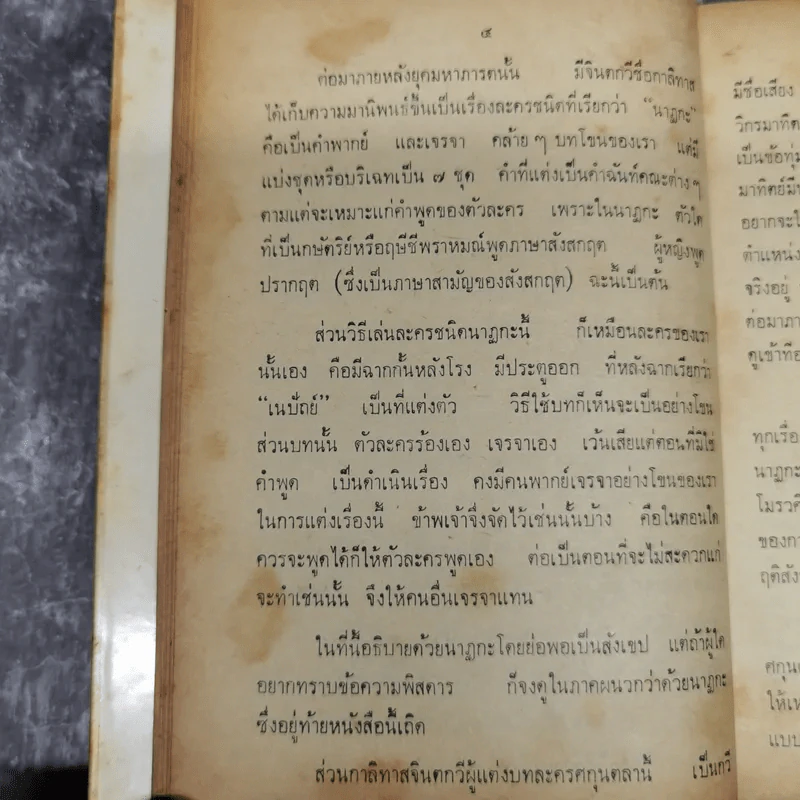 ๕
ต่อมาภายหลังยุคมหาภารตนั้น มีจินตกวีชื่อกาลิทาส
ได้เก็บความมานิพนธ์ขึ้นเป็นเรื่องละครชนิดที่เรียกว่า “นาฏกะ”
คือเป็นคำพากย์ และเจรจา คล้าย ๆ บทโขนของเรา แต่มี
แบ่งชุดหรือบริเฉทเป็น ๗ ชุด คำที่แต่งเป็นคำฉันท์คณะต่าง ๆ
ตามแต่จะเหมาะแก่คำพูดของตัวละคร เพราะในนาฏกะ ตัวใด
ที่เป็นกษัตริย์หรือฤษีชีพราหมณ์พูดภาษาสังสกฤต ผู้หญิงพูด
ปรากฤต (ซึ่งเป็นภาษาสามัญของสังสกฤต) ฉะนี้เป็นต้น
ส่วนวิธีเล่นละครชนิดนาฏกะนี้ ก็เหมือนละครของเรา
นั้นเอง คือมีฉากกั้นหลังโรง มีประตูออก ที่หลังฉากเรียกว่า
“เนปัถย์” เป็นที่แต่งตัว วิธีใช้บทก็เห็นจะเป็นอย่างโขน
ส่วนบทนั้น ตัวละครร้องเอง เจรจาเอง เว้นเสียแต่ตอนที่มิใช่
คำพูด เป็นดำเนินเรื่อง คงมีคนพากย์เจรจาอย่างโขนของเรา
ในการแต่งเรื่องนี้ ข้าพเจ้าจึ่งจัดไว้เช่นนั้นบ้าง คือในตอนใด
ควรจะพูดได้ก็ให้ตัวละครพูดเอง ต่อเป็นตอนที่จะไม่สะดวกแก่
จะทำเช่นนั้น จึงให้คนอื่นเจรจาแทน
ในที่นี้อธิบายด้วยนาฏกะโดยย่อพอเป็นสังเขป แต่ถ้าผู้ใด
อยากทราบข้อความพิสดาร ก็จงดูในภาคผนวกว่าด้วยนาฏกะ
ซึ่งอยู่ท้ายหนังสือนี้เถิด
ส่วนกาลิทาสจินตกวีผู้แต่งบทละครศกุนตลานี้ เป็นกวี
มีชื่อเสียง
วิกรมาทิต
เป็นข้อทุ่ม
มาทิตย์มีน
อยากจะใ
ตำแหน่ง
จริงอยู่
ต่อมาภา
ดูเข้าทีอ
ทุกเรื่อ
นาฏกะ
โมรวศิ
ของกา
ฤติสัง
ศกุน
ให้เห
แบบ